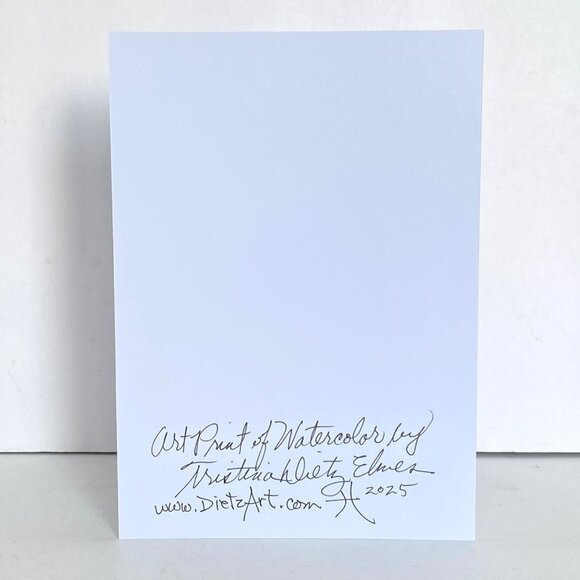 Art Print of Watercolor by
Tristina Dietz Elmes
www.DietzArt.com 2025